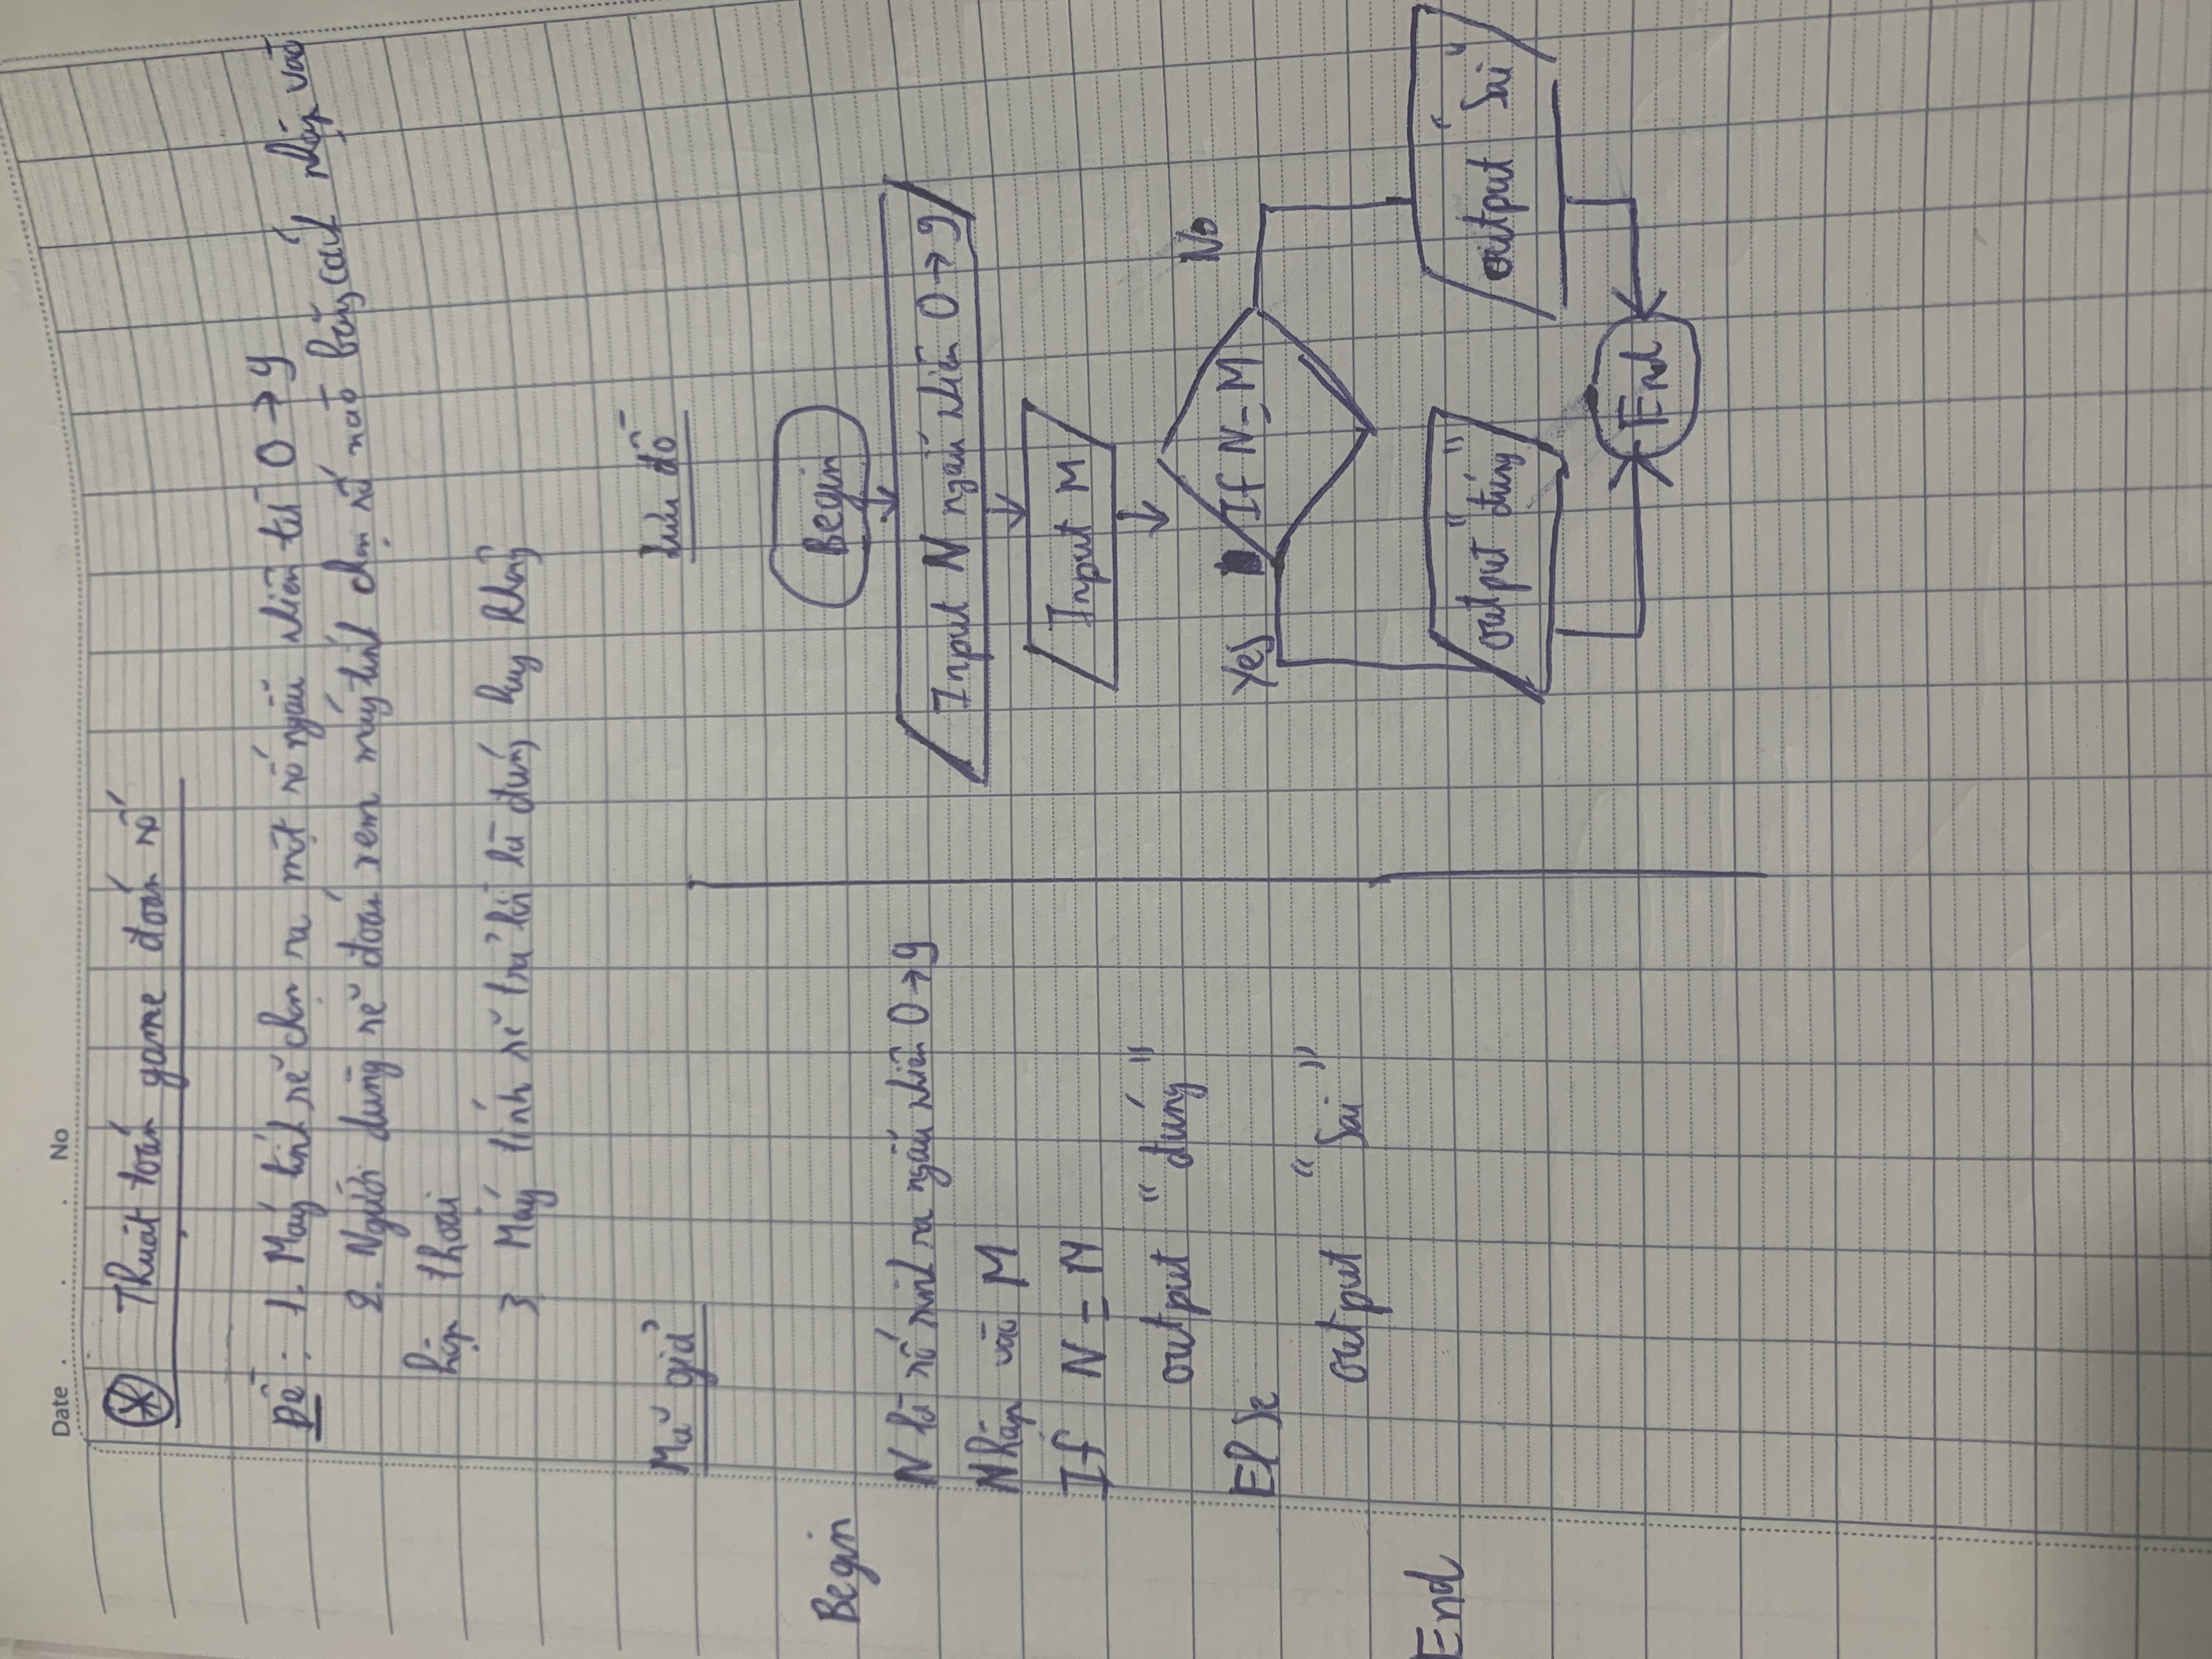 Date . . . No
Thuật toán game đoán số
Đề: 1. Máy tính sẽ chọn ra một số ngẫu nhiên từ 0 → 9
2. Người dùng sẽ đoán xem máy tính chọn số nào bằng cách nhập vào
hộp thoại
3 Máy tính sẽ trả lời là đúng hay không
Mã giả
Begin
N là số sinh ra ngẫu nhiên 0 → 9
Nhập vào M
If N = M
output "đúng"
Else
output "Sai"
End
Lưu đồ
Begin
Input N ngẫu nhiên 0 → 9
Input M
If N = M
Yes
No
output "đúng"
output "Sai"
End